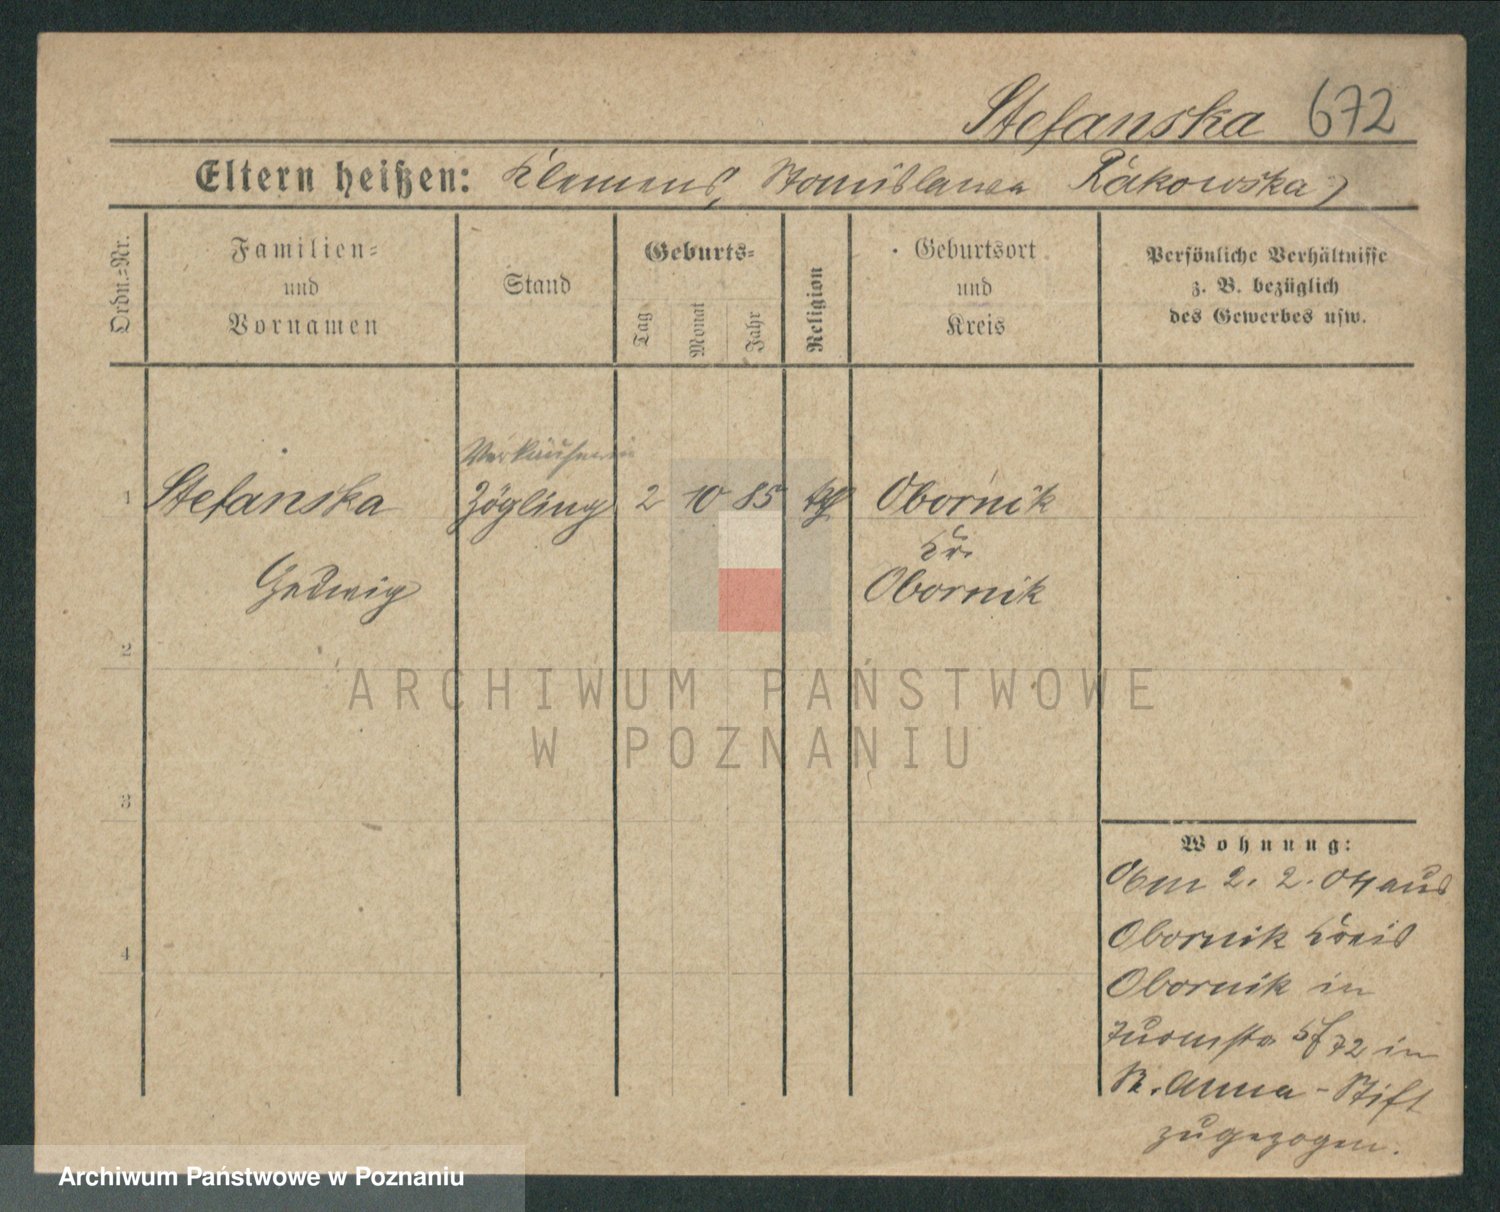 Stefanska 672
Eltern heißen: Klemens, Stanislawa Rakowska
Ordn.-Nr.
Familien-
und
Vornamen
Stand
Geburts-
Tag
Monat
Jahr
Religion
Geburtsort
und
Kreis
Persönliche Verhältnisse
z. B. bezüglich
des Gewerbes usw.
Verkäuferin
1 Stefanska Zögling 2 10 85 kth Obornik
Kr.
Hedwig Obornik
2
ARCHIWUM PAŃSTWOWE
W POZNANIU
3
Wohnung:
Am 2. 2. 04 aus
4 Obornik Kreis
Obornik in
5/72 in
St. Anna-Stift
zugezogen.
Archiwum Państwowe w Poznaniu